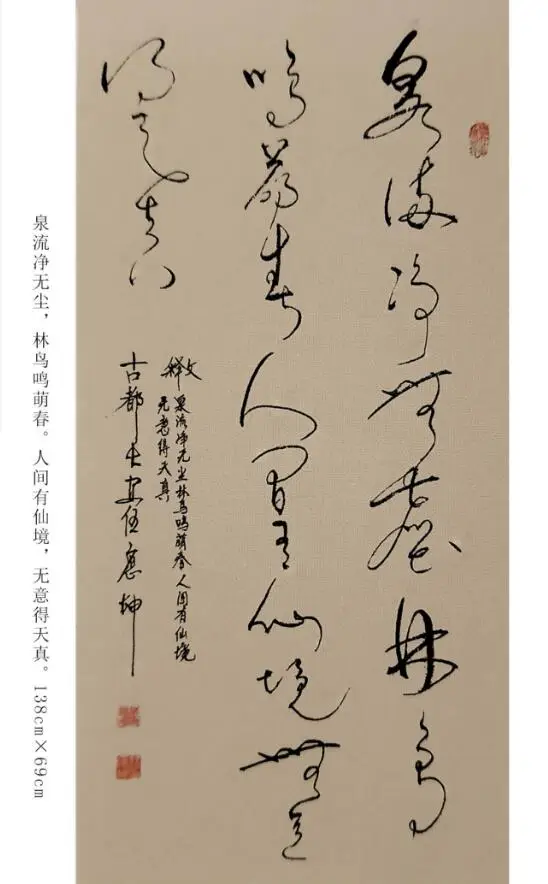 泉流净無塵林鳥
鳴萌春人間有仙境無意
得天真
释文泉流净无尘林鸟鸣萌春人间有仙境
无意得天真
古都长安任應坤
泉流净无尘，林鸟鸣萌春。人间有仙境，无意得天真。138cm×69cm